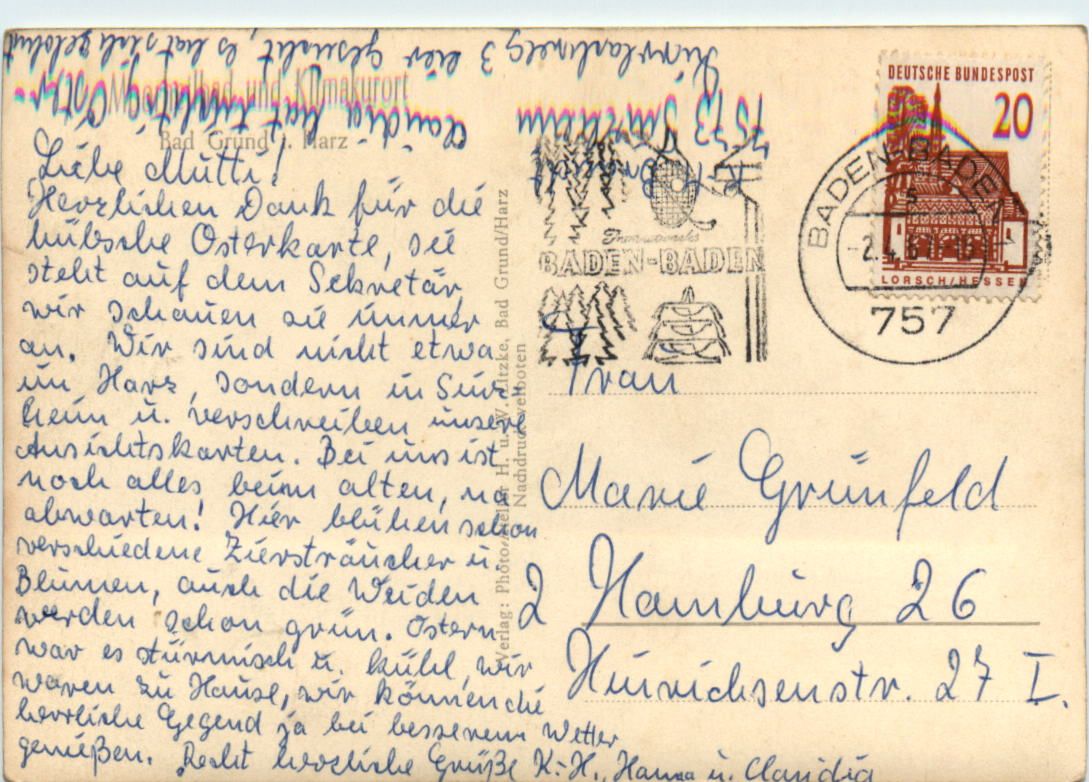 Mineralbad und Klimakurort
Bad Grund i. Harz
Liebe Mutti!
Herzlichen Dank für die
hübsche Osterkarte, sie
steht auf dem Sekretär,
wir schauen sie immer
an. Wir sind nicht etwa
im Harz, sondern in Sinz-
heim u. verschreiben unsere
Ansichtskarten. Bei uns ist
noch alles beim alten, na
abwarten! Hier blühen schon
verschiedene Ziersträucher u.
Blumen, auch die Weiden
werden schon grün. Ostern
war es stürmisch u. kühl, wir
waren zu Hause, wir können die
herrliche Gegend ja bei besserem Wetter
genießen. Recht herzliche Grüße K.-H., Hanna u. Claudia
Claudia hat tüchtig Oster
eier gesucht, es hat sich gelohnt
7573 Sinzheim
3
Verlag: Photo-Keller H. u. W. Litzke, Bad Grund/Harz
Nachdruck verboten
Internationales
BADEN-BADEN
DEUTSCHE BUNDESPOST
20
LORSCH/HESSEN
BADEN-BADEN
s
757
Frau
Marie Grünfeld
2 Hamburg 26
Hinrichsenstr. 27 I.